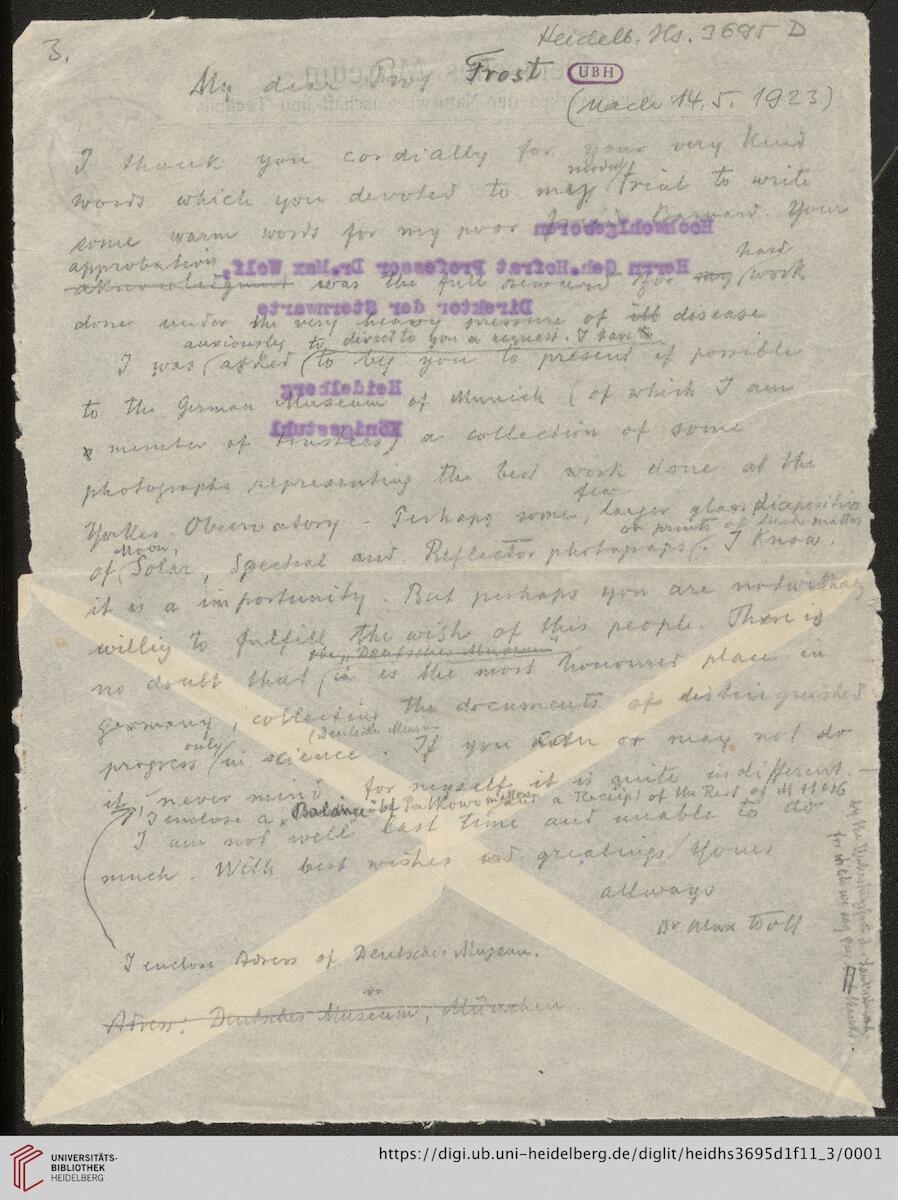 3.
Heidelb. Hs. 3695 D
My dear Prof Frost
UBH
(nach 14.5.1923)
I thank you cordially for your very kind
modest
words which you devoted to my trial to write
some warm words for my poor friend Barnard. Your
approbation
aknowledgment was the full reward for my hard work
done under the very heavy pressure of ill disease
anxiously to direct to you a request. I have
I was asked to beg you to present if possible
to the German Museum of Munich (of which I am
a member of trustees) a collection of some
photographs representing the best work done at the
few
Yerkes Observatory. Perhaps some larger glass diapositives
Moon, or prints of such matter
of Solar, Spectral and Reflector photograps. I know.
it is a importunity. But perhaps you are notwithstanding
willig to fulfill the wish of this people. There is
the "Deutsches Museum"
no doubt that is the most honoured place in
Germany, collecting the documents of distinguished
only (Deutsches Museum
progress in science. If you or may not do
it, never mind, for myself it is quite indifferent.
I enclose a a Receipt of the Rest of M
I am not well last time and unable to do
much. With best wishes and greatings Yours
allways
Dr Max Wolf
I enclose Adress of Deutsches Museum.
Adress: Deutsches Museum, München
Hochwohlgeboren
Herrn Geh.Hofrat Professor Dr.Max Wolf,
Direktor der Sternwarte
Heidelberg
Königsstuhl
UNIVERSITÄTS-
BIBLIOTHEK
HEIDELBERG
https://digi.ub.uni-heidelberg.de/diglit/heidhs3695d1f11_3/0001